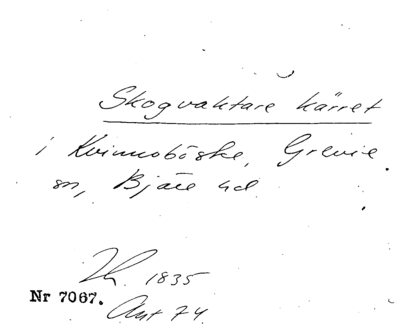 Skogvaktare kärret
i Kvinnoböske, Grevie
sn, Bjäre hd
1835
Nr 7067.
Ant 74